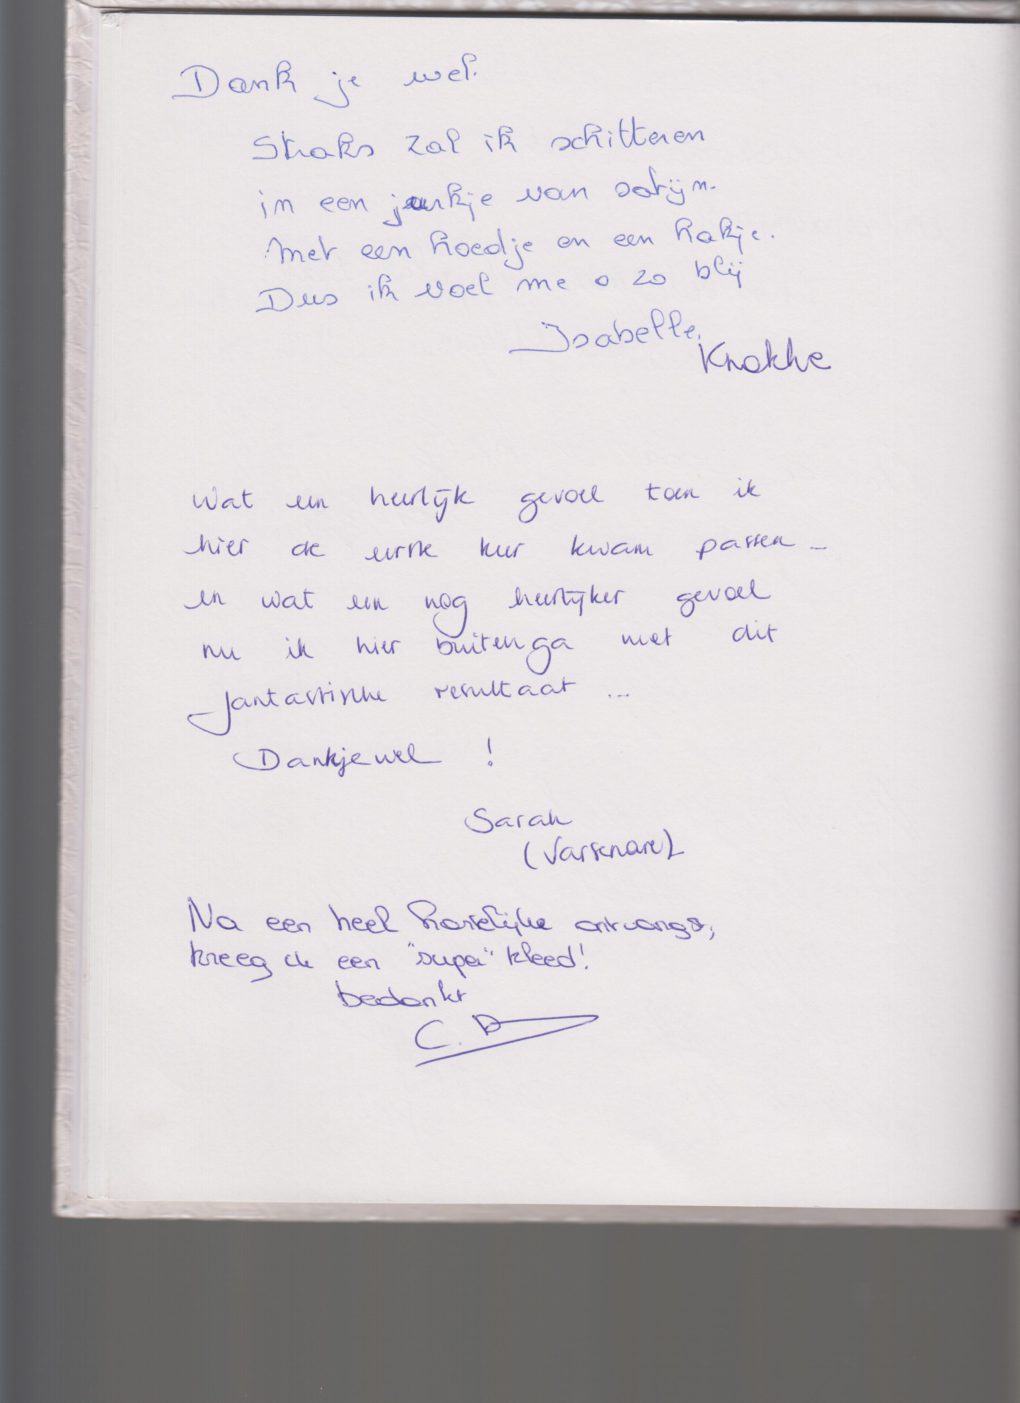 Dank je wel.
Straks zal ik schitteren
in een jurkje van satijn.
Met een hoedje en een hakje.
Dus ik voel me o zo blij
Isabelle,
Knokke
Wat een heerlijk gevoel toen ik
hier de eerste keer kwam passen ...
en wat een nog heerlijker gevoel
nu ik hier buitenga met dit
fantastische resultaat ...
Dankjewel !
Sarah
(Varsenare)
Na een heel hartelijke ontvangst,
kreeg ik een "super" kleed!
bedankt
C. D